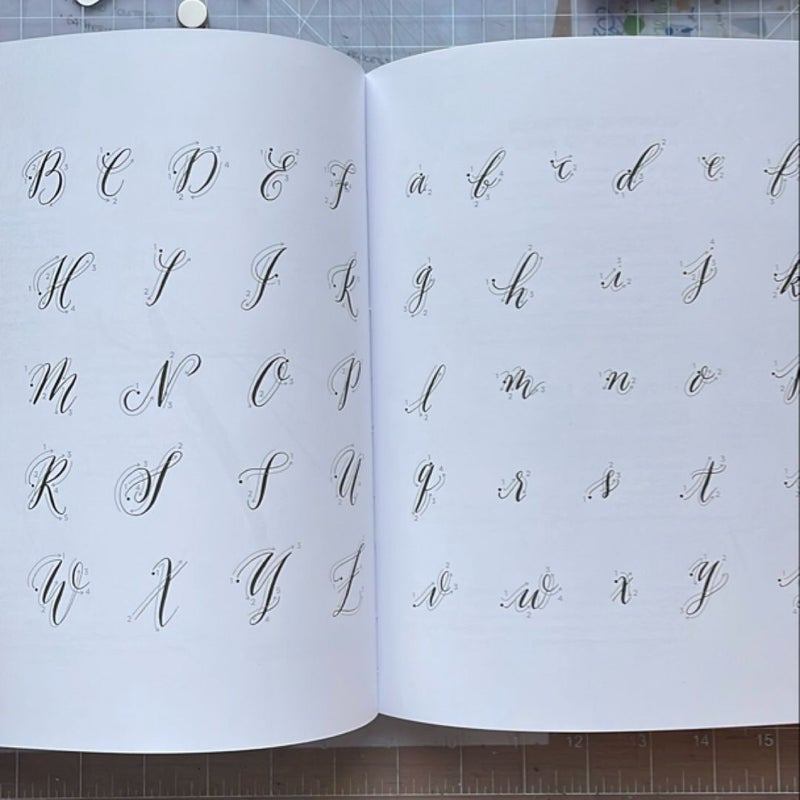 B C D E F
H I J K
M N O P
R S T U
W X Y Z
a b c d e f
g h i j k
l m n o
q r s t
v w x y
12 13 14 15